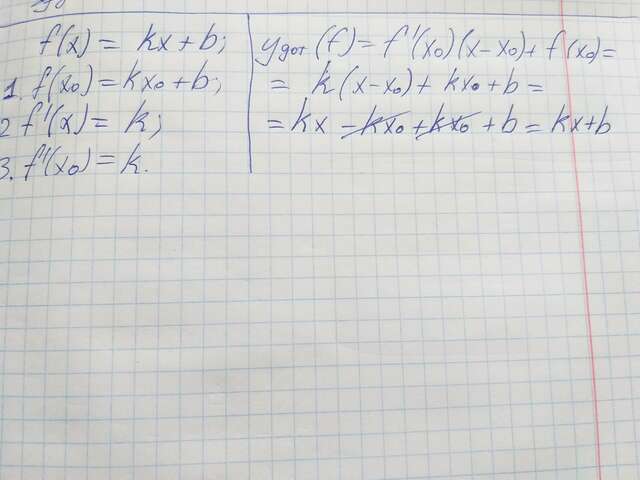 f(x) = kx + b;
1. f(x₀) = kx₀ + b;
2 f'(x) = k;
3. f'(x₀) = k.
yдот (f) = f'(x₀)(x-x₀) + f(x₀) =
= k(x-x₀) + kx₀ + b =
= kx - kx₀ + kx₀ + b = kx + b